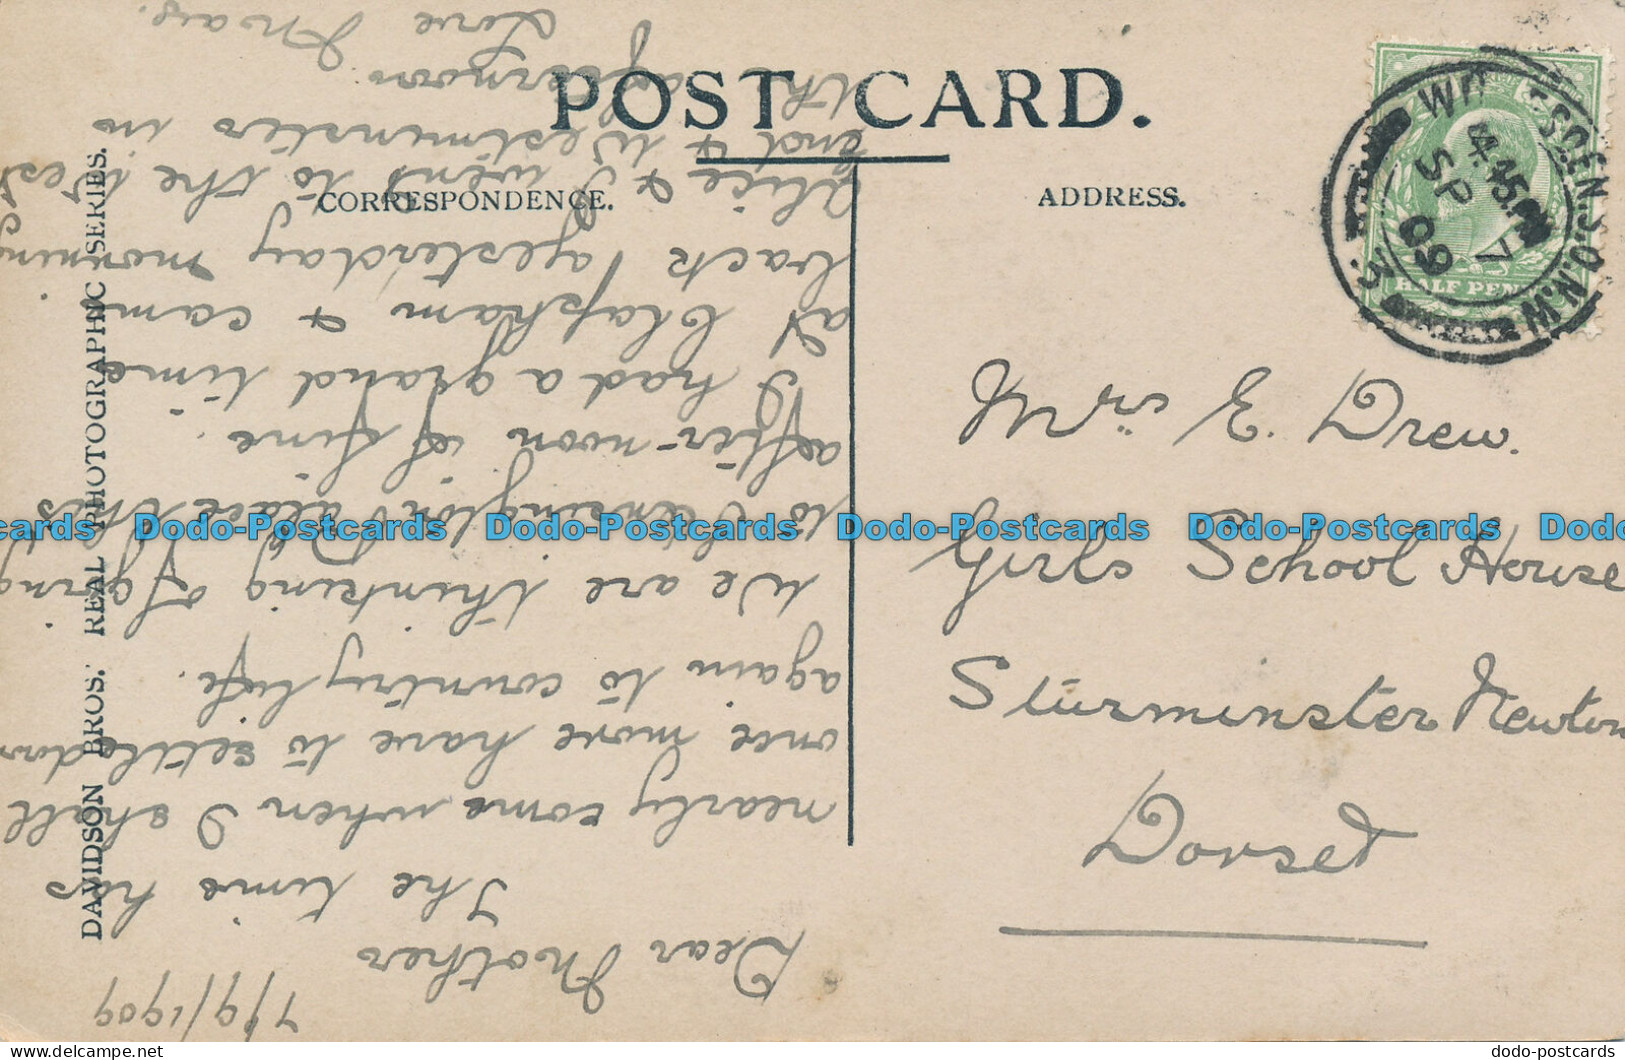 POST CARD.
CORRESPONDENCE.
ADDRESS.
DAVIDSON BROS. REAL PHOTOGRAPHIC SERIES.
HALF PENNY
4.45 PM
SP 7
09
S.O.N.W.
Mrs E. Drew.
Girls School House
Sturminster Newton
Dorset
7/9/1909
Dear Mother
The time has
nearly come when I shall
once more have to settle down
again to country life.
We are thinking of going
to Kensington Palace this
after-noon if fine.
I had a grand time
at Clapham & came
back yesterday morning
Alice & I went to the West
end & Westminster in
the afternoon
Love May.
Dodo-Postcards Dodo-Postcards Dodo-Postcards Dodo-Postcards Dodo-Postcards
dodo-postcards